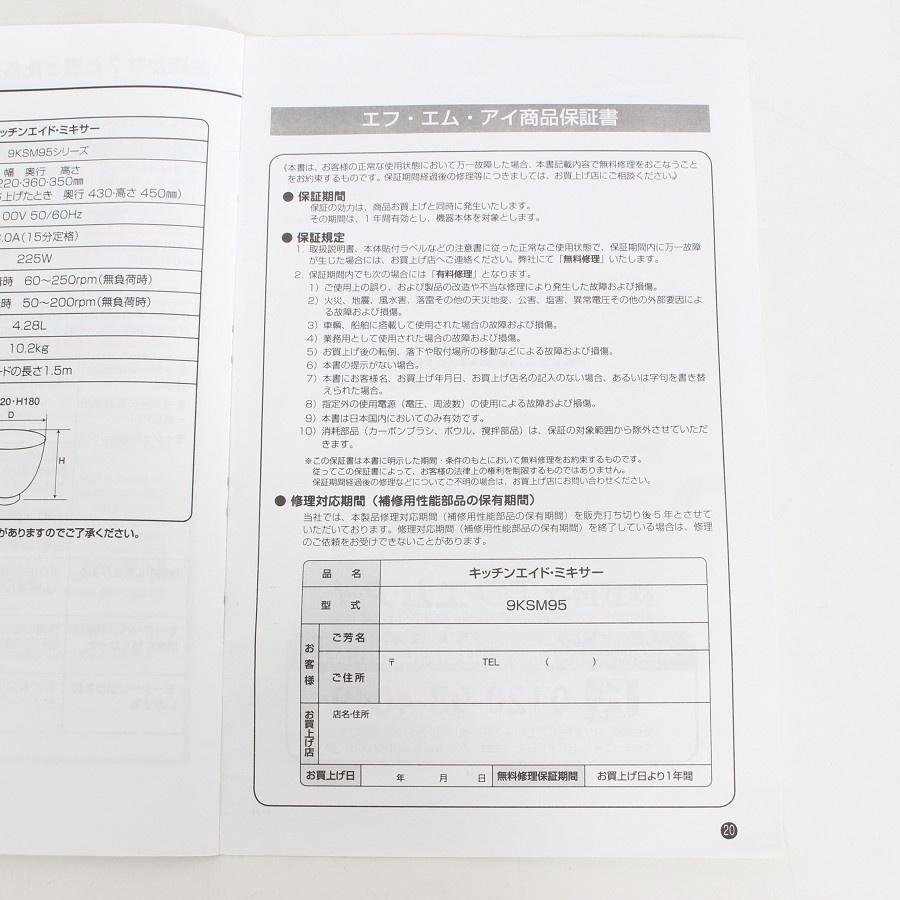 ッチンエイド・ミキサー
9KSM95シリーズ
幅 奥行 高さ
220・360・350㎜
上げたとき 奥行 430・高さ 450㎜)
00V 50/60Hz
.0A(15分定格)
225W
時 60〜250rpm(無負荷時)
時 50〜200rpm(無負荷時)
4.28L
10.2kg
ードの長さ1.5m
20・H180
D
H
がありますのでご了承ください。
エフ・エム・アイ商品保証書
《本書は、お客様の正常な使用状態において万一故障した場合、本書記載内容で無料修理をおこなうこと
をお約束するものです。保証期間経過後の修理等につきましては、お買上げ店にご相談ください。》
● 保証期間
保証の効力は、商品お買上げと同時に発生いたします。
その期間は、1年間有効とし、機器本体を対象とします。
● 保証規定
1. 取扱説明書、本体貼付ラベルなどの注意書に従った正常なご使用状態で、保証期間内に万一故障
が生じた場合には、お買上げ店へご連絡ください。弊社にて「無料修理」いたします。
2. 保証期間内でも次の場合には「有料修理」となります。
1）ご使用上の誤り、および製品の改造や不当な修理により発生した故障および損傷。
2）火災、地震、風水害、落雷その他の天災地変、公害、塩害、異常電圧その他の外部要因によ
る故障および損傷。
3）車輌、船舶に搭載して使用された場合の故障および損傷。
4）業務用として使用された場合の故障および損傷。
5）お買上げ後の転倒、落下や取付場所の移動などによる故障および損傷。
6）本書の提示がない場合。
7）本書にお客様名、お買上げ年月日、お買上げ店名の記入のない場合、あるいは字句を書き替
えられた場合。
8）指定外の使用電源（電圧、周波数）の使用による故障および損傷。
9）本書は日本国内においてのみ有効です。
10）消耗部品（カーボンブラシ、ボウル、撹拌部品）は、保証の対象範囲から除外させていただ
きます。
※この保証書は本書に明示した期間・条件のもとにおいて無料修理をお約束するものです。
従ってこの保証書によって、お客様の法律上の権利を制限するものではありません。
保証期間経過後の修理などについてご不明の場合は、お買上げ店にお問い合わせください。
● 修理対応期間（補修用性能部品の保有期間）
当社では、本製品修理対応期間（補修用性能部品の保有期間）を販売打ち切り後5年とさせて
いただいております。修理対応期間（補修用性能部品の保有期間）を終了している場合は、修理
のご依頼をお受けできないことがあります。
品 名 キッチンエイド・ミキサー
型 式 9KSM95
お客様
ご芳名
ご住所 〒 TEL ( )
お買上げ店 店名・住所
お買上げ日 年 月 日 無料修理保証期間 お買上げ日より1年間
20